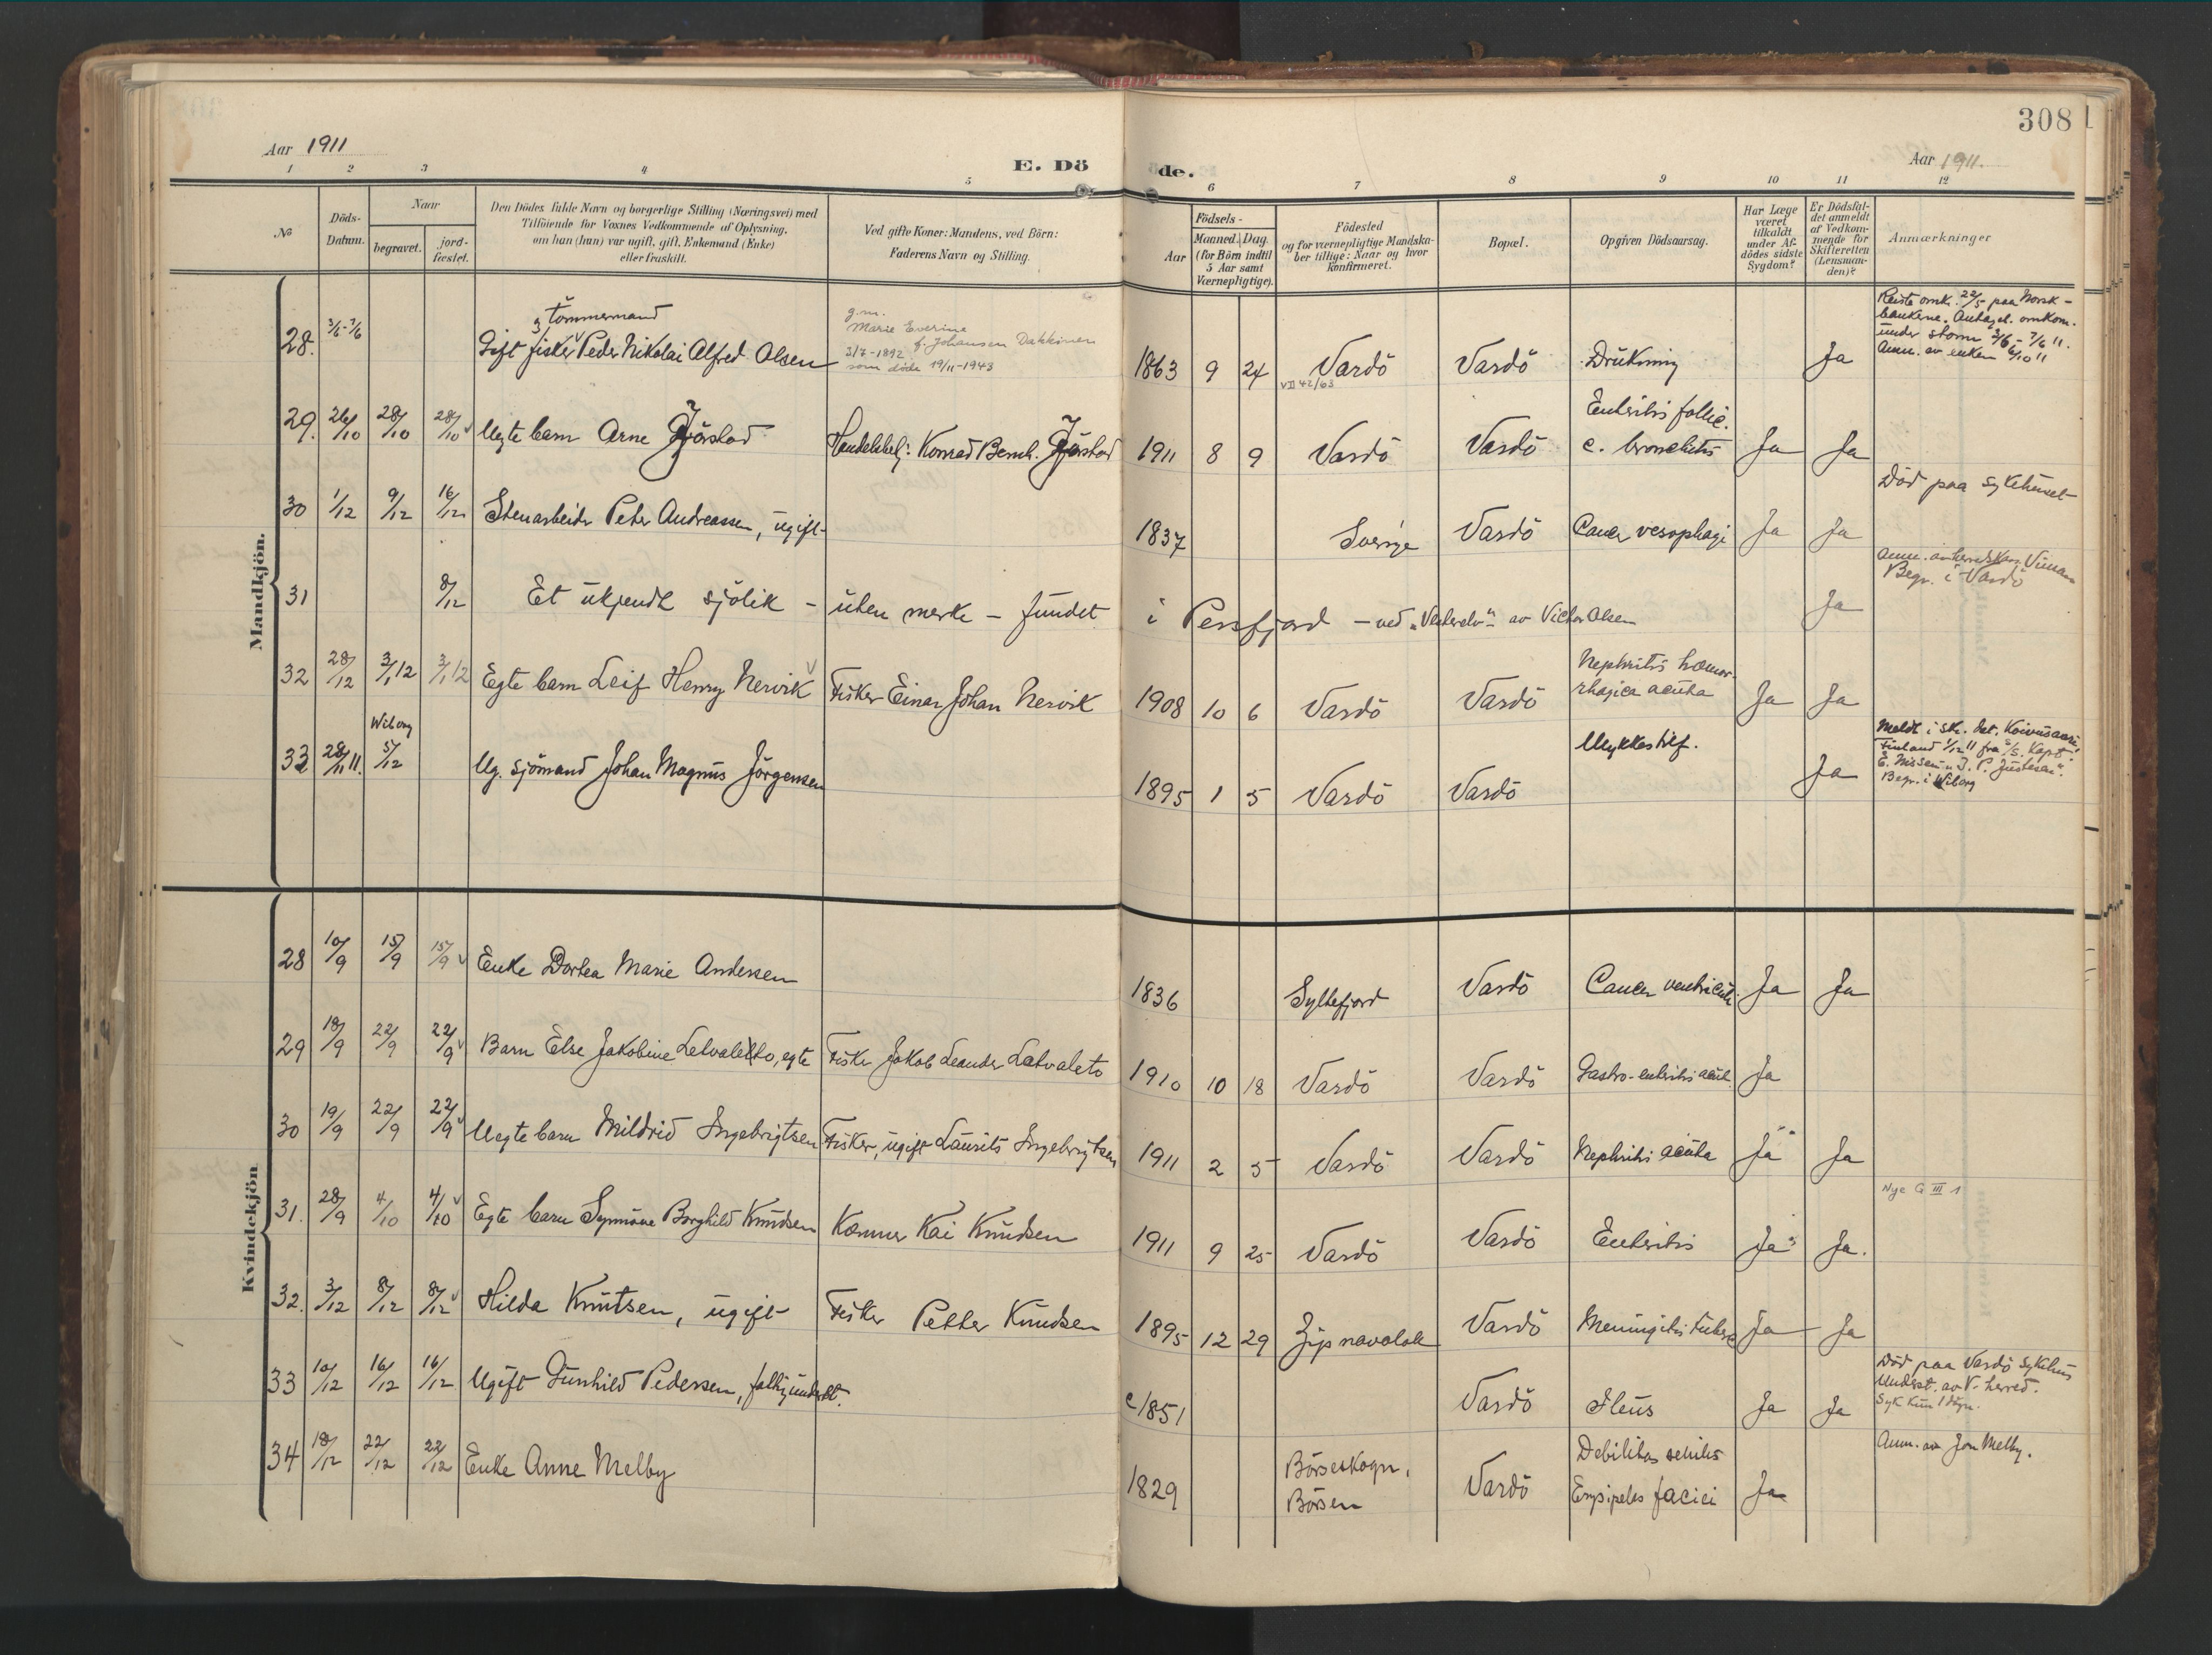 308
Aar 1911
E. Dö
de.
Aar 1911.
1 2 3 4 5 6 7 8 9 10 11 12
No
Döds-Datum.
Naar
begravet.
jord-fæstet.
Den Dödes fulde Navn og borgerlige Stilling (Næringsvei) med
Tilföiende for Voxnes Vedkommende af Oplysning,
om han (hun) var ugift, gift, Enkemand (Enke)
eller fraskilt.
Ved gifte Koner: Mandens, ved Börn:
Faderens Navn og Stilling.
Födsels-
Aar
Maaned. Dag.
(for Börn indtil
5 Aar samt
Værnepligtige).
Födested
og for værnepligtige Mandska-
ber tillige: Naar og hvor
konfirmeret.
Bopæl.
Opgiven Dödsaarsag.
Har Læge
været
tilkaldt
under Af-
dödes sidste
Sygdom?
Er Dödsfal-
det anmeldt
af Vedkom-
mende for
Skifteretten
(Lensman-
den)?
Anmærkninger
Mandkjön.
28. 3/6-7/6
tömmermand
Gift fisker Peder Nikolai Alfred Olsen
g.m.
Marie Everine
f. Johansen Dakkinen
3/7-1892
som döde 19/11-1943
1863 9 24 Vardö Vardö Drukning Ja
VII 42/63
Reiste omk. 22/5 paa Norsk-
bankene. Antagel. omkom.
under storm 3/6-7/6 11.
Anm. av enken 6/10 11
29. 26/10 28/10 28/10 Uegte barn Arne Fjörstad
Handelsbetj: Konrad Bernh. Fjörstad
1911 8 9 Vardö Vardö
Enteritis follic.
c. bronchitis Ja Ja
30 1/12 9/12 16/12 Stenarbeider Peter Andreassen, ugift
1837 Sverige Vardö Cancer oesophagi Ja Ja
Död paa sykehuset
31 8/12 Et ukjendt sjölik - uten merke - fundet i Persfjord - ved "Vesterelv" av Victor Olsen Ja
Begr. i Vardö
32 28/12 3/1 12 3/1 12 Egte barn Leif Henry Nervik
Fisker Einar Johan Nervik
1908 10 6 Vardö Vardö
Nephritis hæmor-
rhagica acuta Ja Ja
33 28/11 11.
Wiborg
5/12
Ug. sjömand Johan Magnus Jörgensen
1895 1 5 Vardö Vardö Ulykkestilf. Ja
Meldt i skr. dat. Koivusaari,
Finland 1/12 11 fra S/S. Kapt.
E. Nissen "J. P. Justesen".
Begr. i Wiborg
Kvindekjön
28 10/9 15/9 15/9 Enke Dortea Marie Andersen
1836 Syltefjord Vardö Cancer ventriculi Ja Ja
29 18/9 22/9 22/9 Barn Else Jakobine Latvaletto, egte
Fisker Jakob Leander Latvaleto
1910 10 18 Vardö Vardö Gastro-enteritis acut. Ja
30 19/9 22/9 22/9 Uegte barn Mildrid Ingebrigtsen
Fisker, ugift Laurits Ingebrigtsen
1911 2 5 Vardö Vardö Nephritis acuta Ja Ja
31. 28/9 4/10 4/10 Egte barn Synnöve Borghild Knudsen
Kai Knudsen
1911 9 25 Vardö Vardö Enteritis Ja Ja.
Nye G III 1
32. 3/12 8/12 8/12 Hilda Knutsen, ugift
Fisker Petter Knudsen
1895 12 29 Zipnavolok Vardö Meningitis tuberc Ja Ja
33 10/12 16/12 16/12 Ugift Gunhild Pedersen, fattigunderst.
c 1851 Vardö Ileus Ja Ja
Död paa Vardö sykehus
Underst. av V. herred.
Syk kun 1 dögn.
34 18/12 22/12 22/12 Enke Anne Melby
1829
Börseskogn,
Börsen
Vardö
Debilitas senilis
Erysipelas faciei Ja
Anm. av Jon Melby.